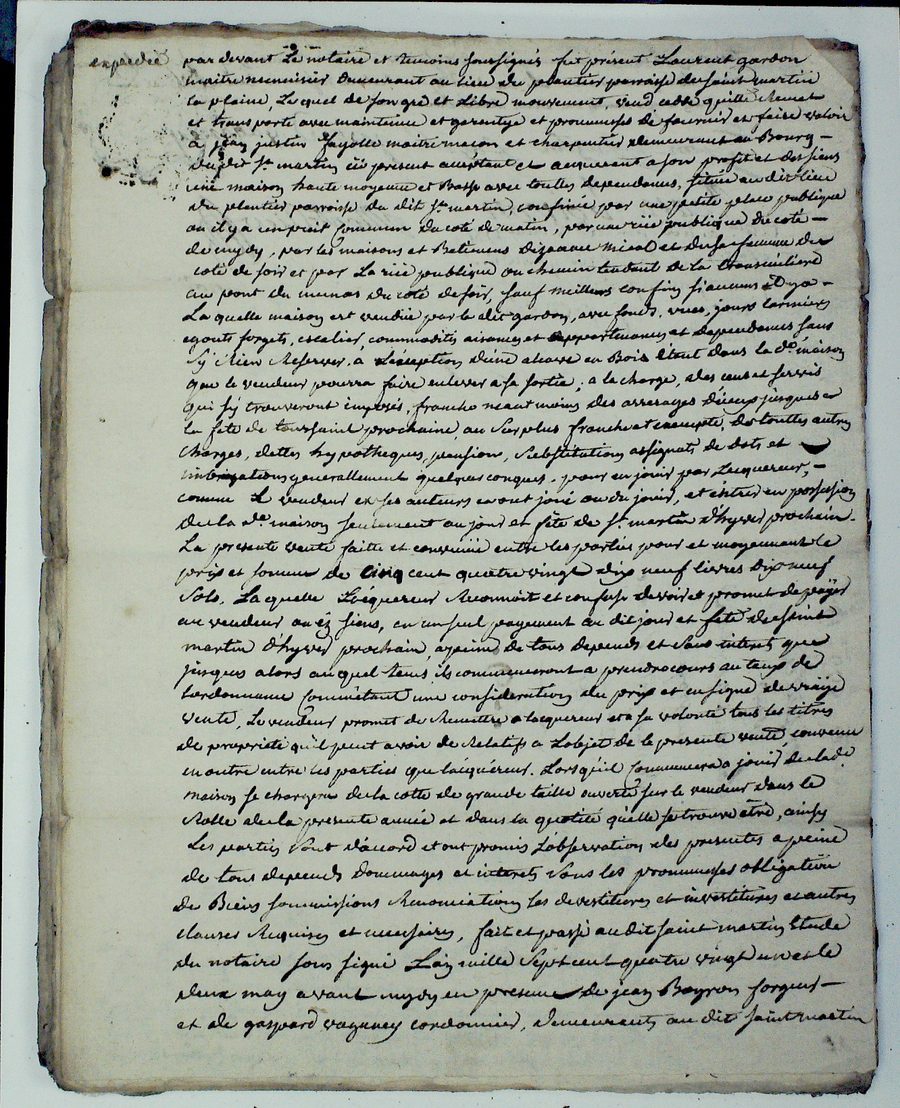 expediée
par devant Le notaire et temoins soussignés fut présent Laurent gardon
maitre menuisier demeurant au lieu du plantier parroisse de saint martin
la plaine, Lequel de son gré et Libre mouvement, vend cedde quitte Remet
et transporte avec maintenue et garentye et prommesse de fournir et faire valoir
a jean justin fayolle maitre macon et charpentier demeurant au Bourg
du dit st. martin icy present acceptant et acquerant a son profit et des siens
une maison haute moyenne et Basse avec touttes dependances, située au dit lieu
du plantier parroisse du dit st. martin, confinée par une petite place publique
ou il y a un puit commun du coté de matin, par une rüe publique du coté
de mydy, par les maisons et Batimens de jeanne et de sa femme du
coté de soir et par La rüe publique ou chemin tendant de la
au pont du du coté de soir, sauf meilleurs confins si aucuns il y a
La quelle maison est vendüe par le dit gardon, avec fonds, vües, jours larmiers
egouts forgets, escalier, commodités aisances et appartenances et dependances sans
s'y Rien Reserver. a L'exseption d'une alcove en Bois étant dans la de. maison
que le vendeur pourra faire enlever a sa sortie; a la charge, des cens et servis
qui s'y trouveront imposés, franche neantmoins des arrerages d'iceux jusques a
la fete de toussaint prochaine, au surplus franche et exempte, de touttes autres
charges, dettes hypotheques, pension, substitutions assignats de dots et
generallement quelquesconques. pour en jouir par Lacquereur,
comme Le vendeur et ses auteurs en ont joui ou du jouir, et entrer en possession
de la de. maison seulement au jour et fête de st. martin d'hyver prochain.
La presente vente faitte et convenüe entre les parties pour et moyennant le
prix et somme de cinq cent quatre vingt dix neuf livres dix neuf
sols. Laquelle L'acquereur Reconnoit et confesse devoir et promet de payer
au vendeur ou éz siens, en un seul payement au dit jour et fete de saint
martin d'hyver prochain, a peine de tous depends et sans interets que
jusques alors auquel tems ils commenceront a prendre cours au taux de
Lordonnance comm'étant une consideration du prix et en signe de vraije
vente, Le vendeur promet de Remettre a lacquereur et a sa volonté tous les titres
de propriété qu'il peut avoir de Relatifs a L'objet de la presente vente, convenu
en outre entre les parties que L'acquéreur. Lorsqu'il commencera a jouir de lade.
maison se chargera de la cotte de grande taille ouverte sur le vendeur dans le
Rolle de la presente année et dans la quotité qu'elle se trouve être, ainsy
Les parties sont d'accord et ont promis L'observation des presentes a peine
de tous depends dommages et interets sous les prommesses obligation
de Biens soumissions Renonciations les devestitures et investitures et autres
clauses Requises et necessaires, fait et passé au dit saint martin Etude
du notaire sous signé L'an mille sept cent quatre vingt un et le
deux may avant mydy en presence de jean Bayron forgeur
et de gaspard vaganey cordonnier, demeurants au dit saint martin